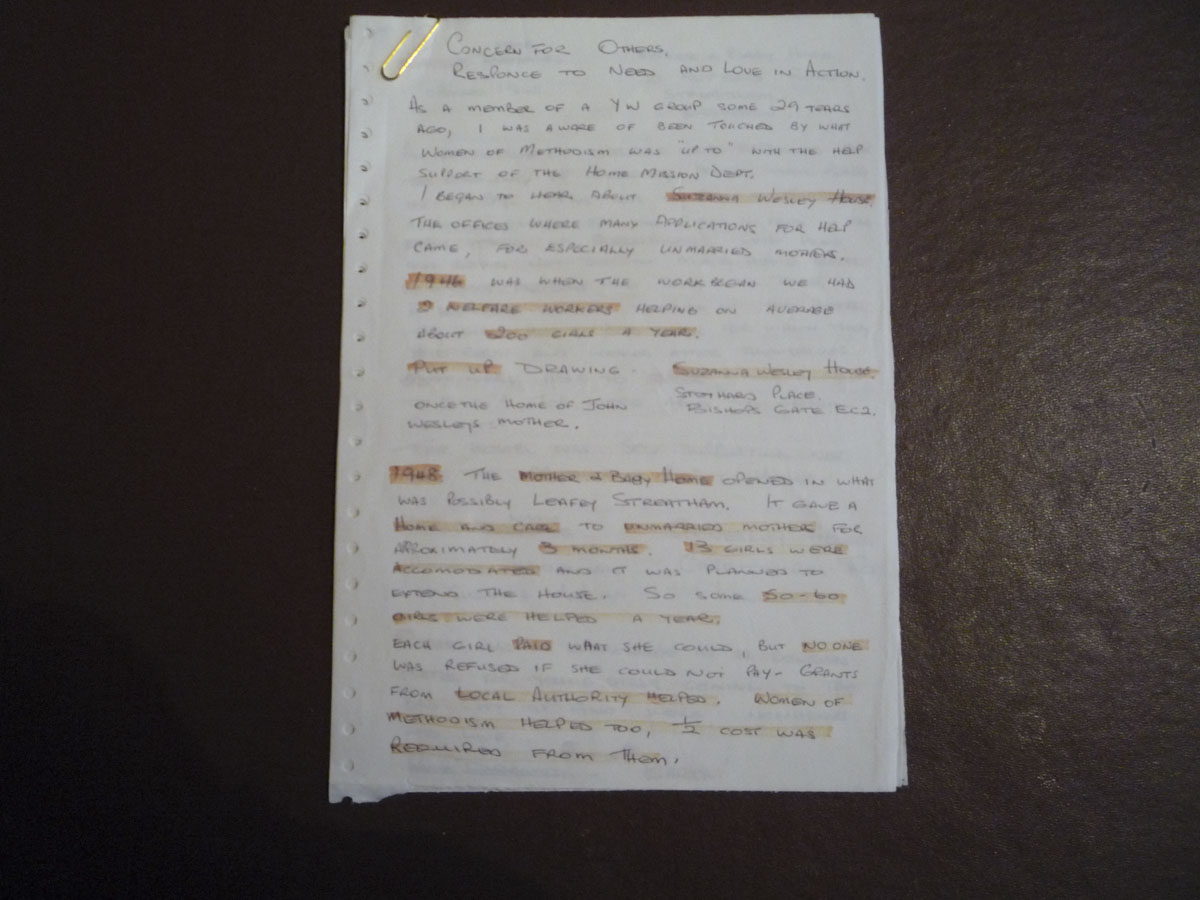 CONCERN FOR OTHERS.
RESPONCE TO NEED AND LOVE IN ACTION.
AS A MEMBER OF A YW GROUP SOME 29 YEARS
AGO, I WAS AWARE OF BEEN TOUCHED BY WHAT
WOMEN OF METHODISM WAS "UP TO" WITH THE HELP
SUPPORT OF THE HOME MISSION DEPT.
I BEGAN TO HEAR ABOUT SUZANNA WESLEY HOUSE
THE OFFICES WHERE MANY APPLICATIONS FOR HELP
CAME, FOR ESPECIALLY UNMARRIED MOTHERS.
1946 WAS WHEN THE WORK BEGAN WE HAD
WELFARE WORKERS HELPING ON AVERAGE
ABOUT 200 GIRLS A YEAR.
PUT UP DRAWING - SUZANNA WESLEY HOUSE
PLACE.
ONCE THE HOME OF JOHN BISHOPS GATE EC2.
WESLEYS MOTHER.
1948 THE MOTHER & BABY HOME OPENED IN WHAT
WAS POSSIBLY LEAFEY STREATHAM. IT GAVE A
HOME AND CARE TO UNMARRIED MOTHERS FOR
APROXIMATELY 3 MONTHS. 13 GIRLS WERE
ACCOMODATED AND IT WAS PLANNED TO
EXTEND THE HOUSE. SO SOME 50-60
GIRLS WERE HELPED A YEAR.
EACH GIRL PAID WHAT SHE COULD, BUT NO ONE
WAS REFUSED IF SHE COULD NOT PAY - GRANTS
FROM LOCAL AUTHORITY HELPED. WOMEN OF
METHODISM HELPED TOO, ½ COST WAS
REQUIRED FROM THEM.